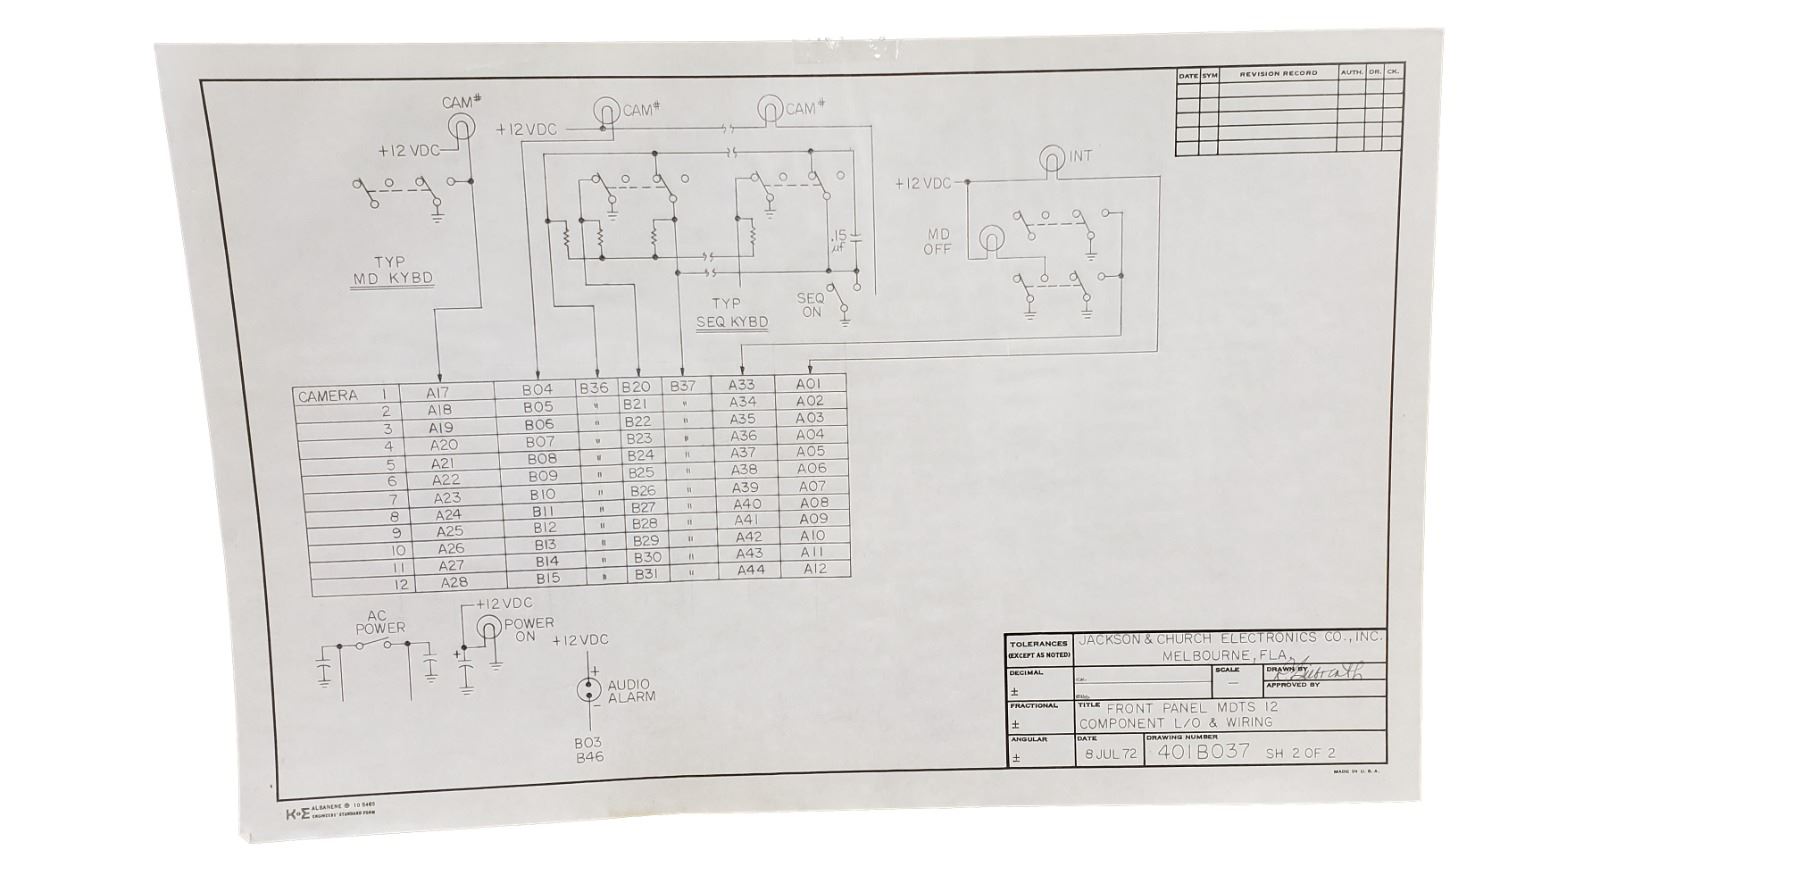 DATE SYM REVISION RECORD AUTH. DR. CK.
CAM#
+12 VDC
TYP
MD KYBD
+12VDC
CAM#
CAM#
.15
µf
TYP
SEQ KYBD
SEQ
ON
INT
+12VDC
MD
OFF
CAMERA 1 A17 B04 B36 B20 B37 A33 A01
2 A18 B05 " B21 " A34 A02
3 A19 B06 " B22 " A35 A03
4 A20 B07 " B23 " A36 A04
5 A21 B08 " B24 " A37 A05
6 A22 B09 " B25 " A38 A06
7 A23 B10 " B26 " A39 A07
8 A24 B11 " B27 " A40 A08
9 A25 B12 " B28 " A41 A09
10 A26 B13 " B29 " A42 A10
11 A27 B14 " B30 " A43 A11
12 A28 B15 " B31 " A44 A12
AC
POWER
+12VDC
POWER
ON
+
+12VDC
+
AUDIO
ALARM
-
B03
B46
TOLERANCES
(EXCEPT AS NOTED)
JACKSON & CHURCH ELECTRONICS CO., INC.
MELBOURNE, FLA.
DECIMAL
±
SCALE
—
DRAWN BY
APPROVED BY
FRACTIONAL
±
TITLE FRONT PANEL MDTS 12
COMPONENT L/O & WIRING
ANGULAR
±
DATE
8 JUL 72
DRAWING NUMBER
401B037 SH 2 OF 2
MADE IN U.S.A.
K+E ALBANENE ® 10 5465
ENGINEERS' STANDARD FORM